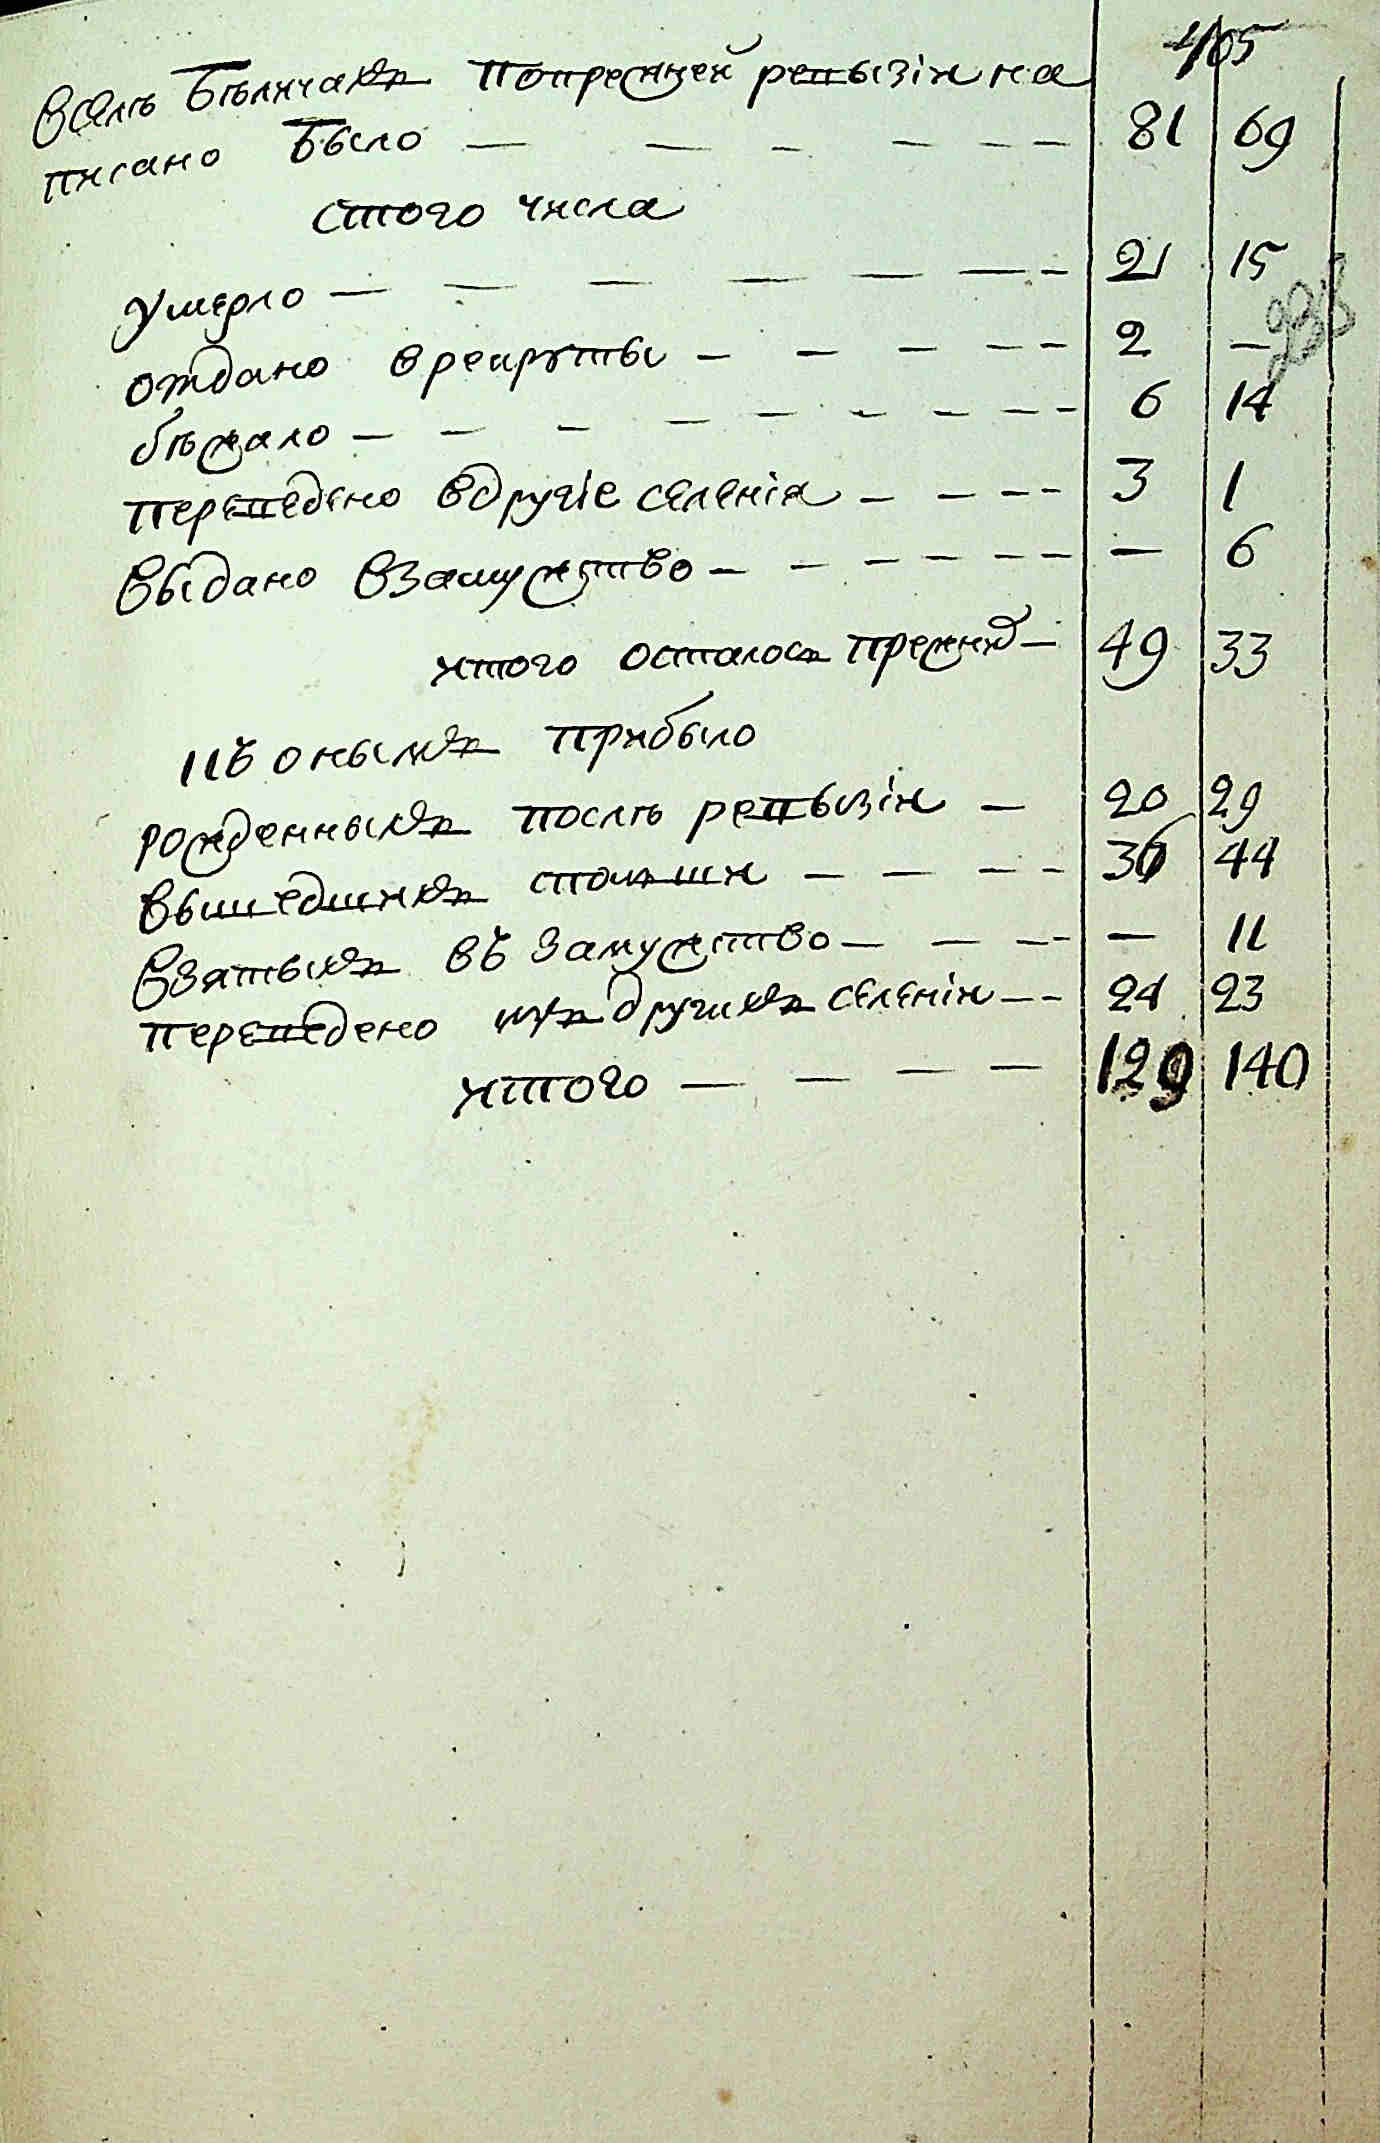 405
Вселѣ Бѣличахъ попрежней ревызіи на
писано было — — — — — — 81 69
стого числа
умерло — — — — — — — 21 15
отдано врекруты — — — — — 2 —
бѣжало — — — — — — — — 6 14
переведено вдругіе селенія — — — — 3 1
выдано взамужство — — — — — — — 6
итого осталось прежнихъ — 49 33
къ онымъ прибыло
рожденныхъ послѣ ревызіи — 20 29
вышедшихъ сполши — — — — 36 44
взятыхъ въ замужство — — — — — 11
переведено изъ другихъ селеніи — — 24 23
итого — — — — 129 140